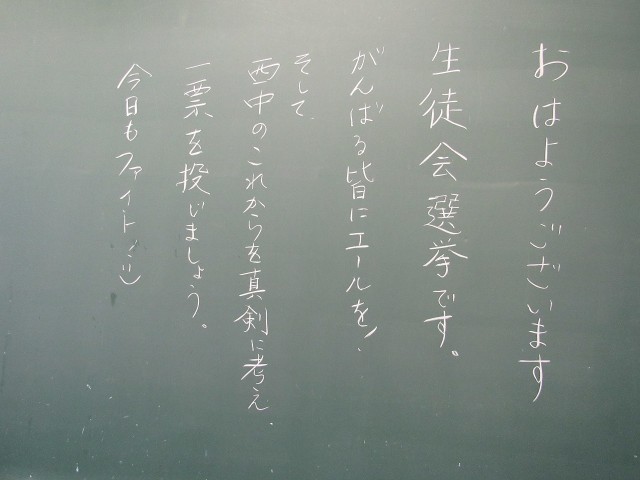 おはようございます
生徒会選挙です。
がんばる皆にエールを!
そして、
西中のこれからを真剣に考え、
一票を投じましょう。
今日もファイト!:)